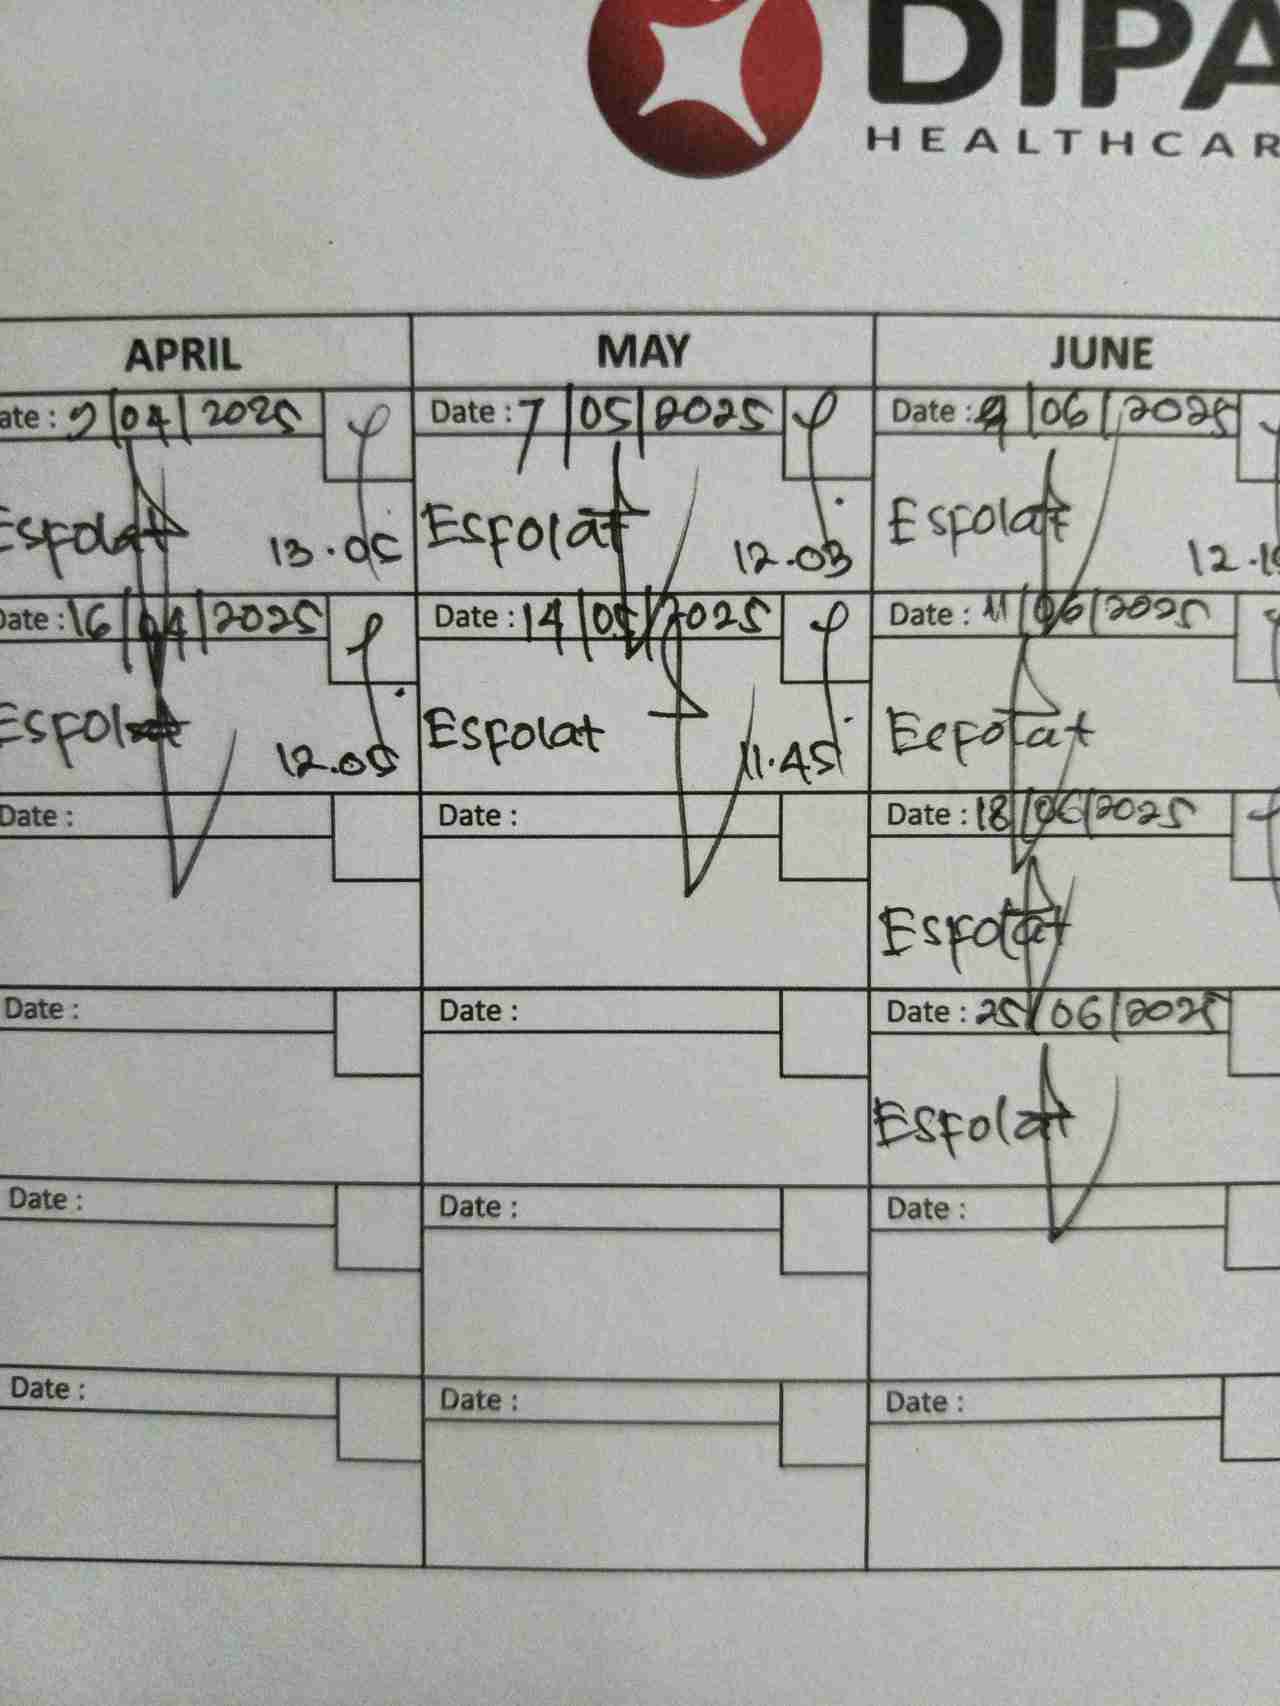 DIPA
HEALTHCAR
APRIL MAY JUNE
ate : 9/04/2025 Date : 7/05/2025 Date : 4/06/2025
Esfolat 13.05 Esfolat 12.03 Esfolat 12.1
Date : 16/04/2025 Date : 14/05/2025 Date : 11/06/2025
Esfolat 12.05 Esfolat 11.45 Esfolat
Date : Date : Date : 18/06/2025
Esfolat
Date : Date : Date : 25/06/2025
Esfolat
Date : Date : Date :
Date : Date : Date :